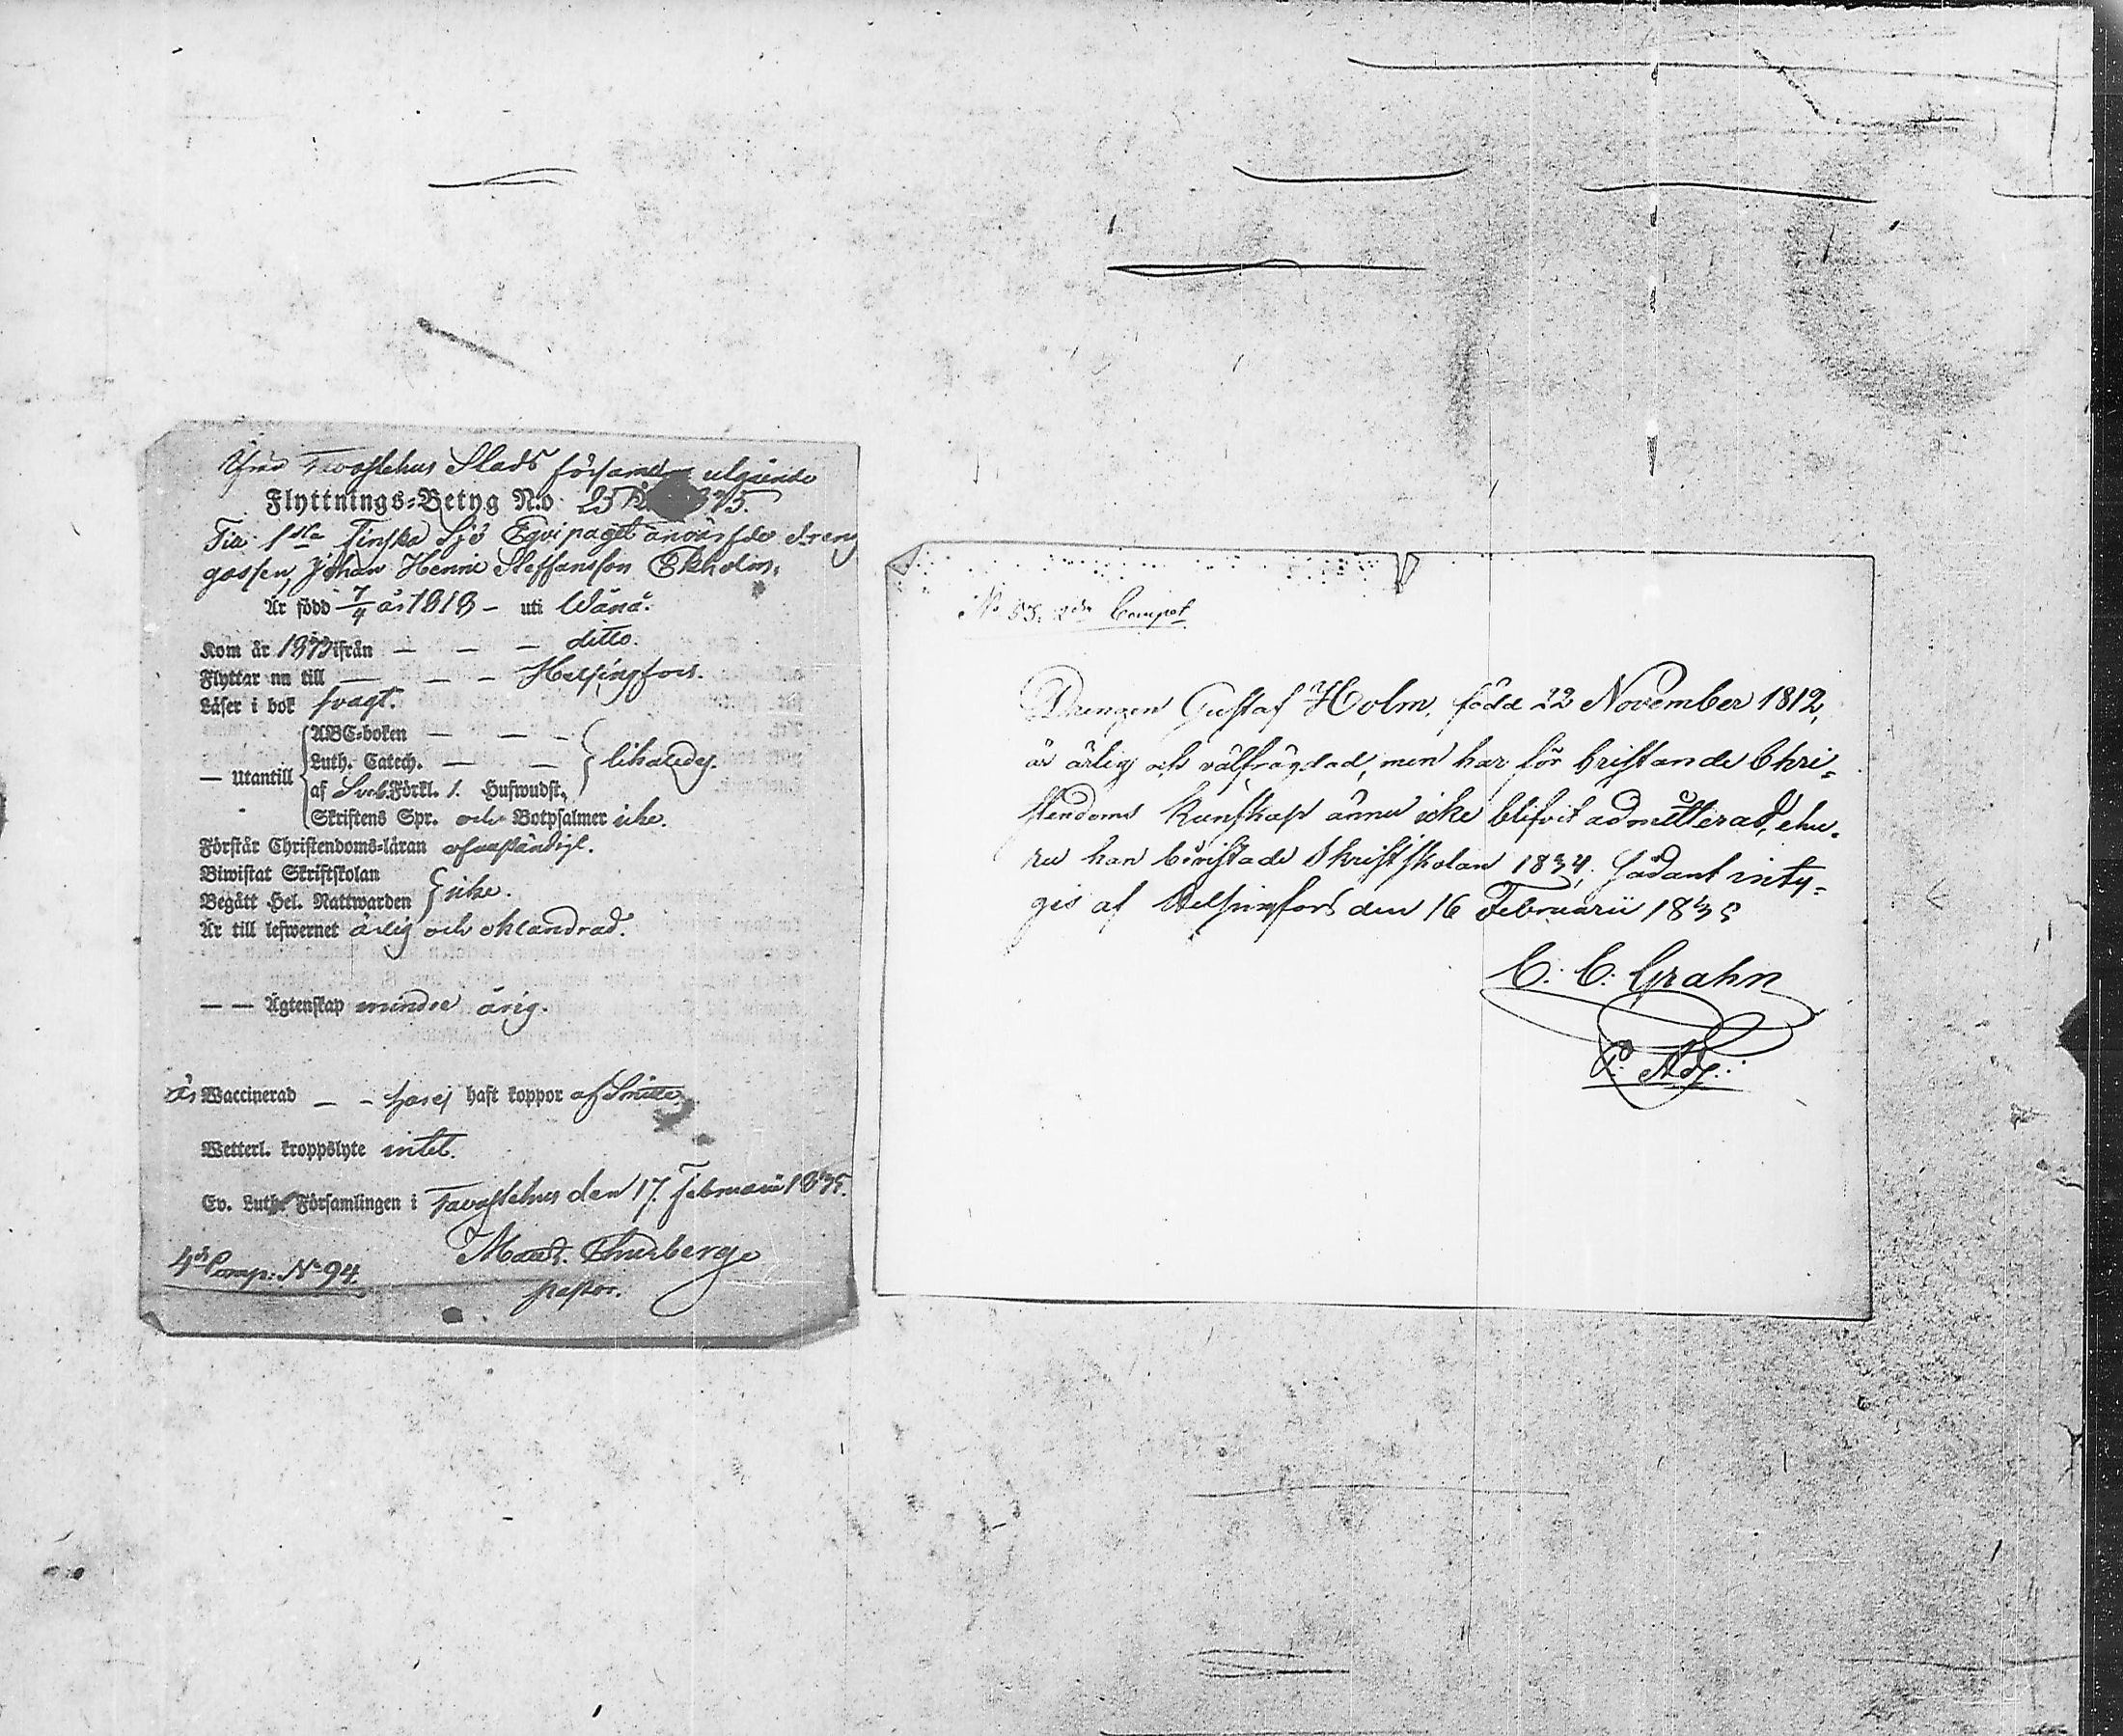 Från Tavastehus Stads församl. utgående
Flyttnings-Betyg N:o 25 1835.
Till 1sta Finska Sjö Equipaget anvärfde dreng
gossen, Johan Henric Steffansson Ekholm,
Är född 7/4 år 1818 – uti Wånå.
Kom år ifrån — — — ditto.
Flyttar nu till — — — Helsingfors.
Läser i bok svagt.
— Utantill
ABC-boken — — —
Luth. Catech. — — likaledes.
af Sveb. Förkl. 1. Hufwudst.
Skriftens Spr. och Botpsalmer icke.
Förstår Christendoms-läran ofullständigt.
Biwistat Skriftskolan
Begått Hel. Nattwarden icke.
Är till lefwernet ärlig och oklandrad.
— — Ägtenskap minder årig.
är Waccinerad — — haft koppor
Wetterl. kroppslyte intet.
Ev. Luth. Församlingen i Tavastehus den 17. Februarii 1835.
Thurberg
pastor.
4de Comp: No 94.
No 53. 2dra Comp
Drengen Gustaf Holm, född 22 November 1812,
är ärlig och välfrägdad, men har för bristande Chri-
stendoms kunskap ännu icke blifvit admitterad, ehu-
ru han bevistade Skriftskolan 1834; Sådant inty-
gis af Helsingfors den 16 Februarii 1835
C. C. Grahn
P. Adj.